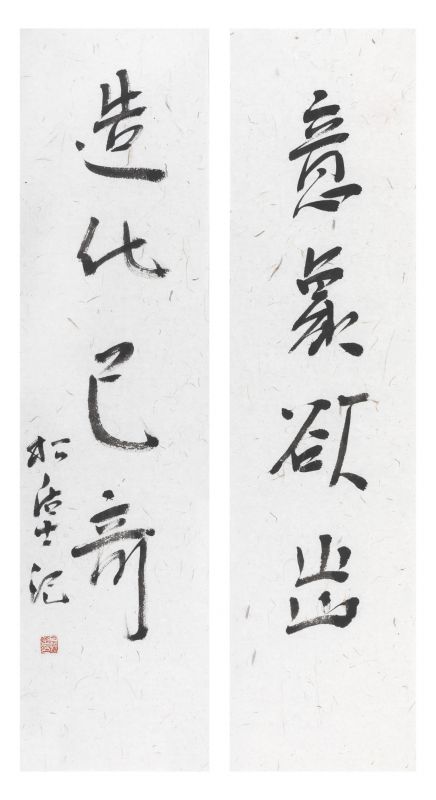 意象欲出
造化已奇
松居士